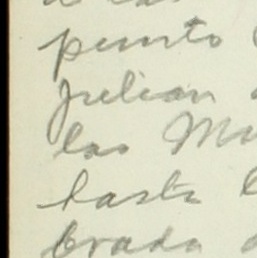 punto
Julian
las
hasta
brada